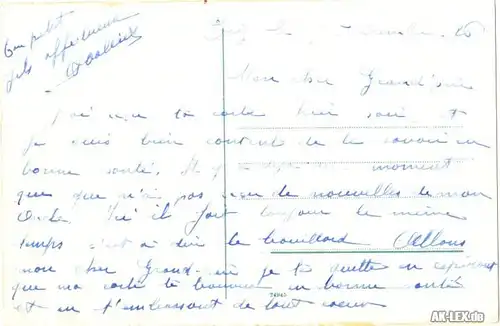 Ton petit
fils affectueux
26
Mon cher Grand père
J'ai reçu ta carte hier soir et
Je suis bien content de te savoir en
bonne santé. Il y a moment
que que n'ai pas reçu de nouvelles de mon
Oncle Ici il fait toujours le même
temps c'est à dire le brouillard Allons
mon cher Grand père je te quitte en espérant
que ma carte te trouvera en bonne santé
et en t'embrassant de tout cœur
74945
AK-LEX.de